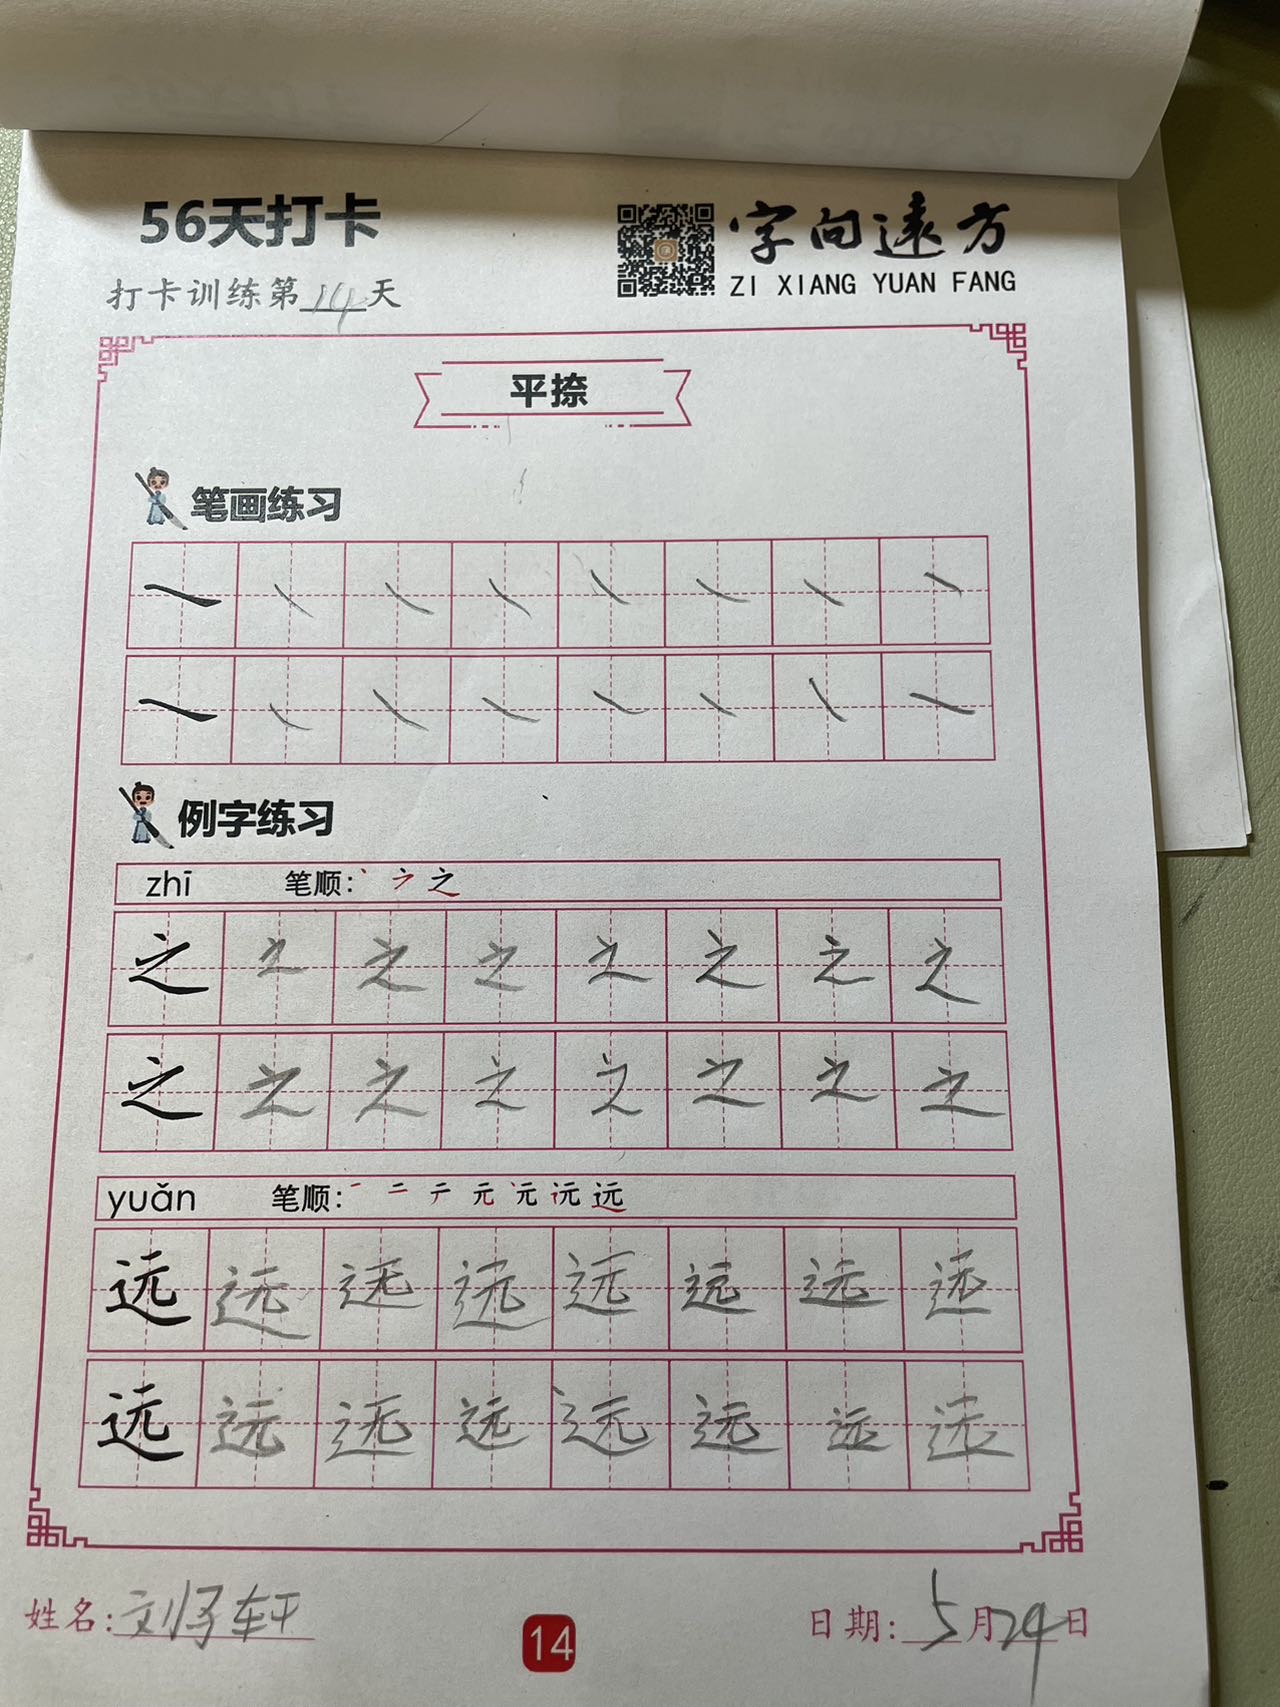 56天打卡
字向遠方
ZI XIANG YUAN FANG
打卡训练第14天
平捺
笔画练习
例字练习
zhī 笔顺: 丶 之
之 之 之 之 之 之 之 之
之 之 之 之 之 之 之 之
yuǎn 笔顺: 一 二 元 远
远 远 远 远 远 远 远 远
远 远 远 远 远 远 远 远
姓名: 刘 轩
14
日期: 5月24日